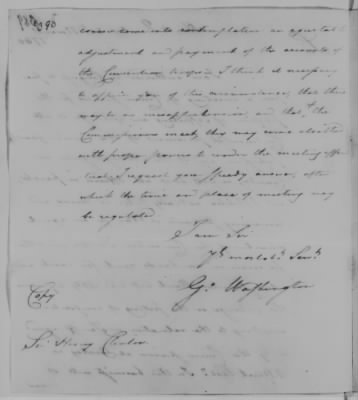 come into contemplation an equitable
adjustment and payment of the accounts of
the Convention troops, I think it necessary
to apprise you of this circumstance, that there
may be no misapprehension and that if the
Commissioners meet, they may come clothed
with proper powers to render the meeting effec
tual. I request your speedy answer, after
which the time and place of meeting may
be regulated
I am Sir
Yr. most obt. Servt.
Go. Washington
Copy
Sir Henry Clinton